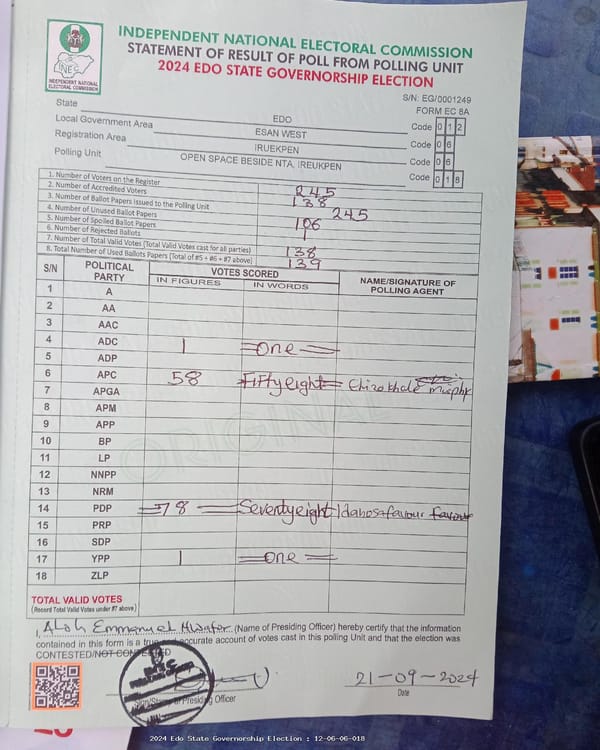 INDEPENDENT NATIONAL ELECTORAL COMMISSION
STATEMENT OF RESULT OF POLL FROM POLLING UNIT
2024 EDO STATE GOVERNORSHIP ELECTION
INEC
INDEPENDENT NATIONAL ELECTORAL COMMISSION
S/N: EG/0001249
FORM EC 8A
State EDO Code 0 1 2
Local Government Area ESAN WEST Code 0 6
Registration Area IRUEKPEN Code 0 6
Polling Unit OPEN SPACE BESIDE NTA, IREUKPEN Code 0 1 8
1. Number of Voters on the Register 245
2. Number of Accredited Voters 138
3. Number of Ballot Papers Issued to the Polling Unit 245
4. Number of Unused Ballot Papers 106
5. Number of Spoiled Ballot Papers 1
6. Number of Rejected Ballots
7. Number of Total Valid Votes (Total Valid Votes cast for all parties) 138
8. Total Number of Used Ballots Papers (Total of #5 + #6 + #7 above) 139
S/N POLITICAL PARTY VOTES SCORED NAME/SIGNATURE OF POLLING AGENT
IN FIGURES IN WORDS
1 A
2 AA
3 AAC
4 ADC 1 One
5 ADP
6 APC 58 Fifty eight
7 APGA
8 APM
9 APP
10 BP
11 LP
12 NNPP
13 NRM
14 PDP 78 Seventy eight Idahosa favour favour
15 PRP
16 SDP
17 YPP 1 One
18 ZLP
ORIGINAL
TOTAL VALID VOTES
(Record Total Valid Votes under #7 above)
I, Emmanuel (Name of Presiding Officer) hereby certify that the information
contained in this form is a true and accurate account of votes cast in this polling Unit and that the election was
CONTESTED/NOT CONTESTED
Presiding Officer
21-09-2024
Date
2024 Edo State Governorship Election : 12-06-06-018